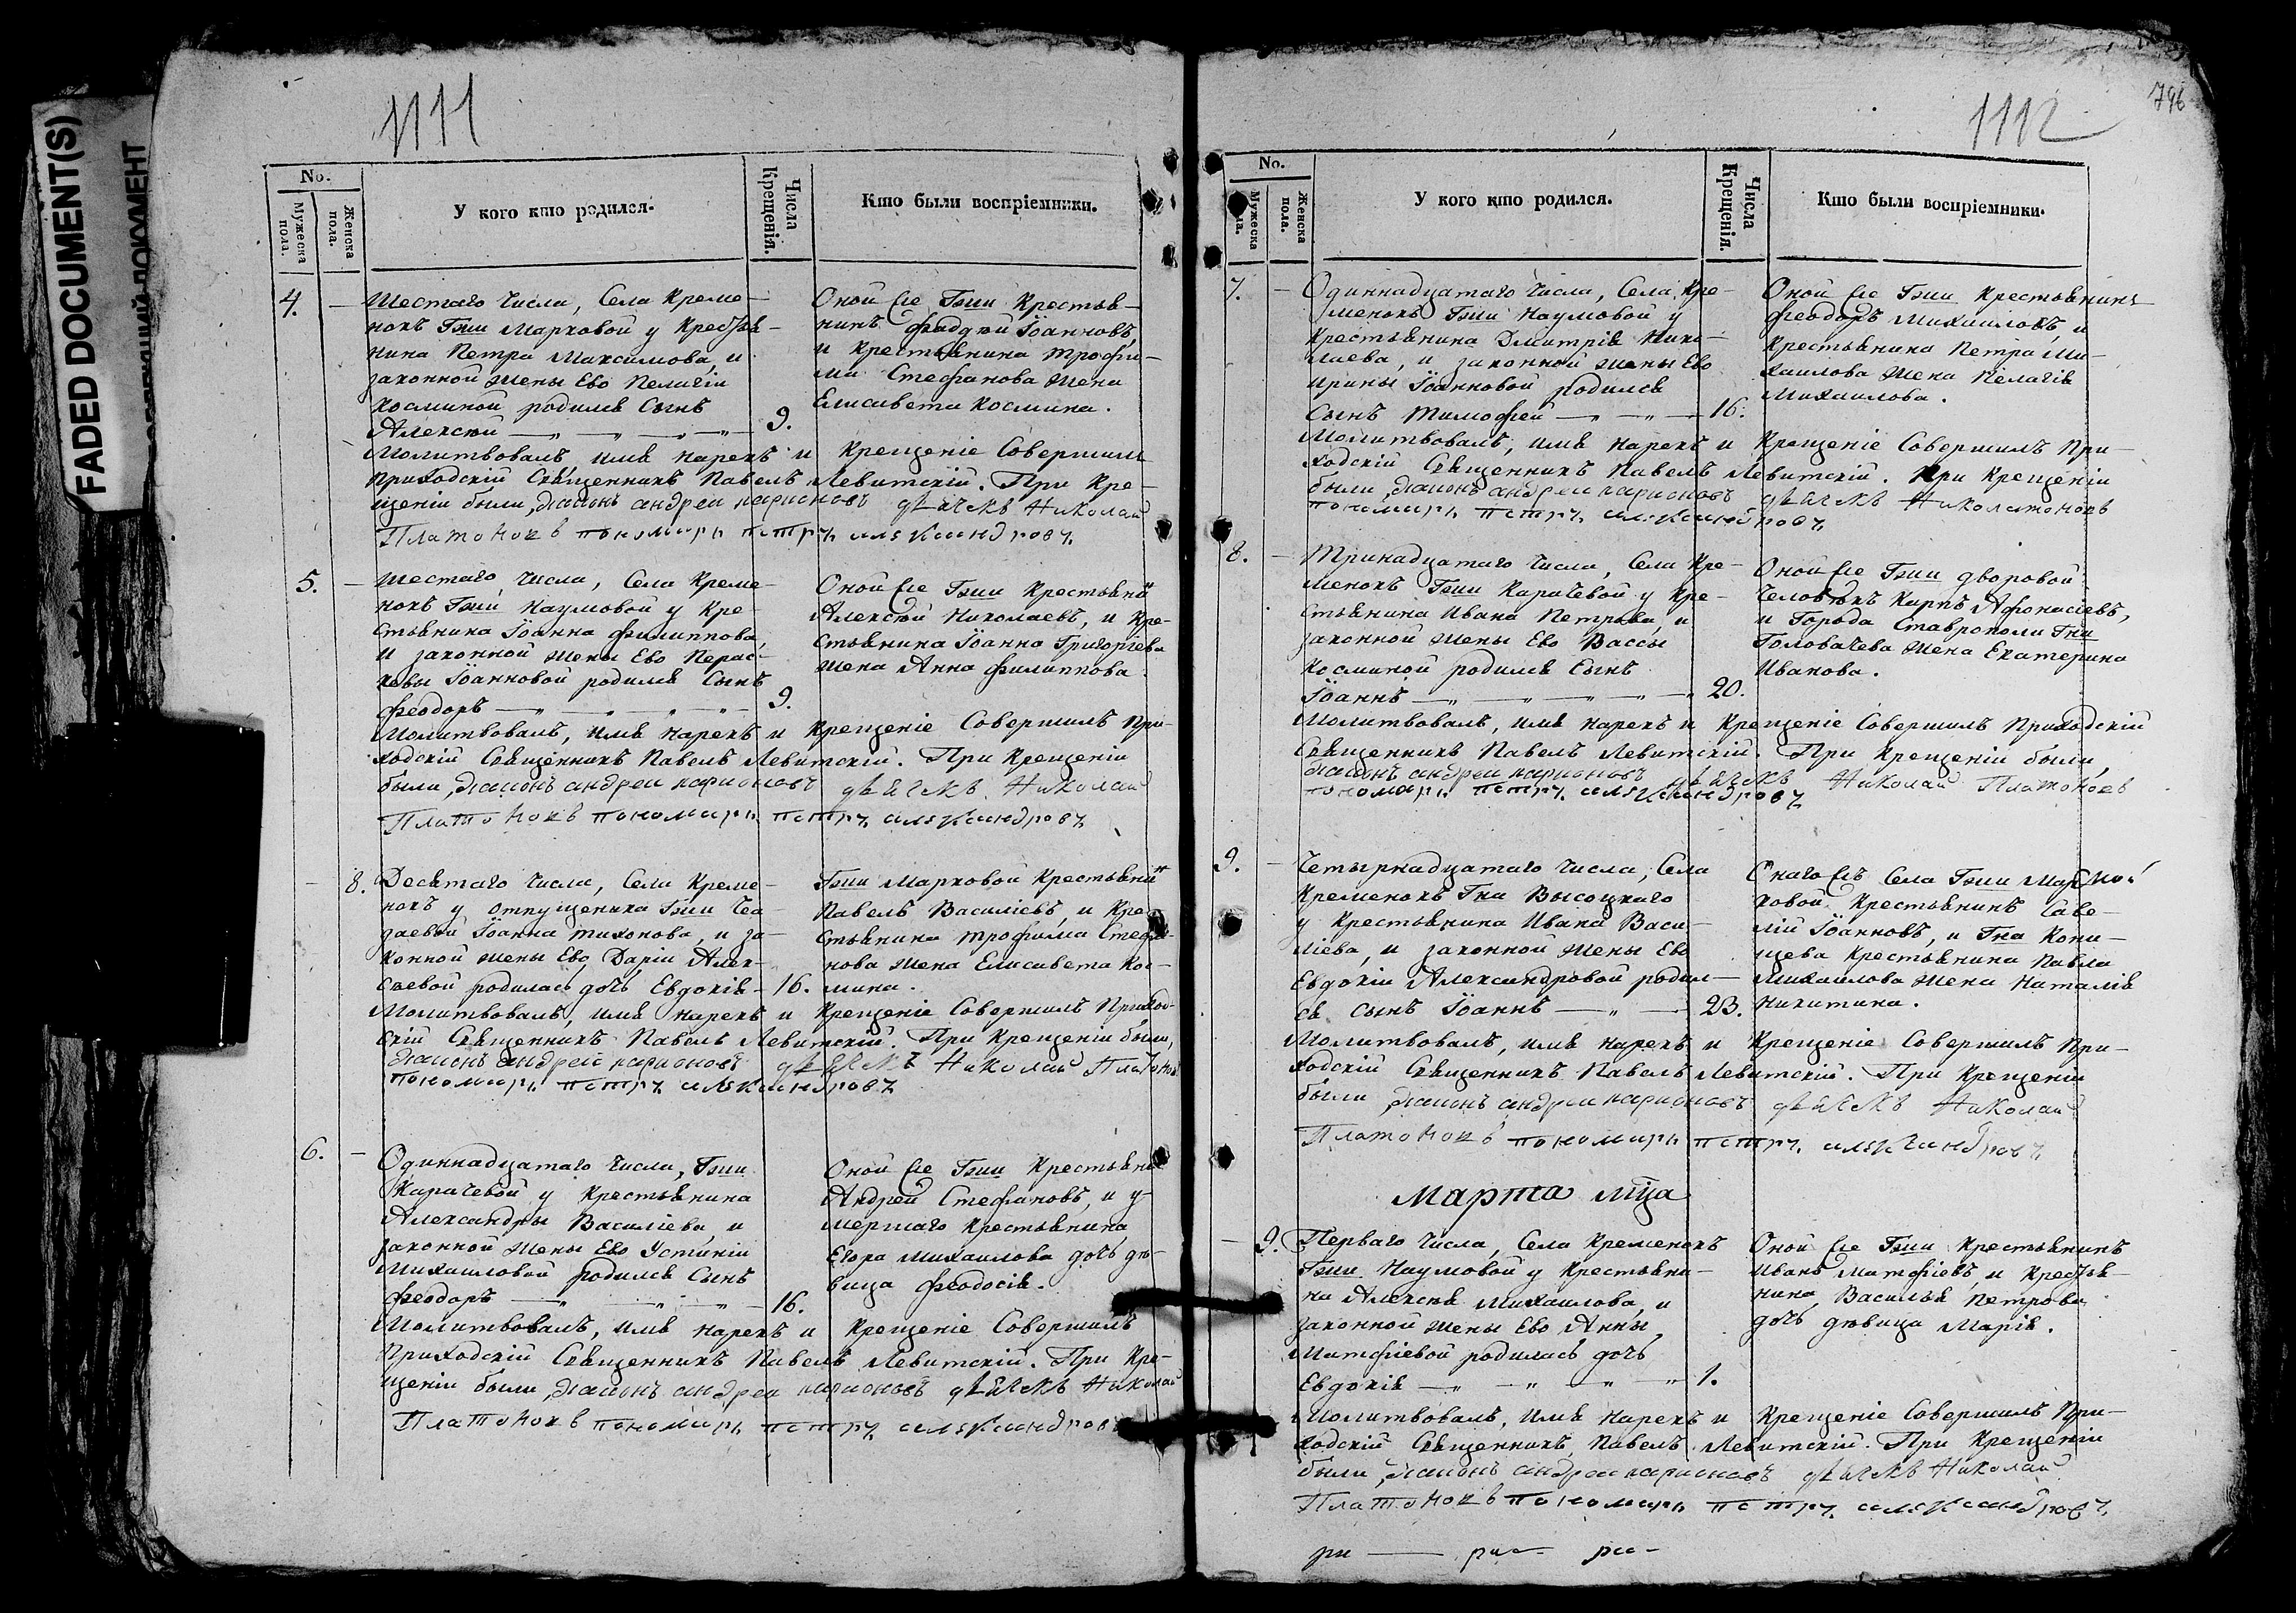 FADED DOCUMENT(S)
1111
No.
Мужеска пола.
Женска пола.
У кого кто родился.
Числа Крещенія.
Кто были воспріемники.
4. — Шестаго числа, Села Креме-
нокъ Гжи Марковой у кресть-
нина Петра Максимова, и
законной жены Ево Пелагіи
Косминой родился Сынъ
Алексѣй — 9.
Оной Же Гжи Крестья-
нинъ Фаддей Іоанновъ,
и крестьянина Трофи-
ма Стефанова жена
Елисавета Космина.
Молитвовалъ, имя нарекъ и Крещеніе Совершилъ
Приходскій Священникъ Павелъ Левитскій. При Кре-
щеніи были, діаконъ андреи ларионовъ дьячекъ Николай
Платоновъ пономарь петръ александровъ
5. — Шестаго числа, Села Креме-
нокъ Гжи Наумовой у Кре-
стьянина Іоанна Филиппова,
и законной жены Ево Парас-
кевы Іоанновой родился Сынъ
Феодоръ — 9.
Оной Же Гжи Крестьянинъ
Алексѣй Николаевъ, и Кре-
стьянина Іоанна Григоріева
жена Анна Филиппова.
Молитвовалъ, имя нарекъ и Крещеніе Совершилъ При-
ходскій Священникъ Павелъ Левитскій. При Крещеніи
были, діаконъ андреи ларионовъ дьячекъ Николай
Платоновъ пономарь петръ александровъ
— 8. Десятаго числа, Села Креме-
нокъ у отпущеника Гжи
Іоанна Тихонова, и за-
конной жены Ево Даріи Алек-
сѣевой родилась дочь Евдокія — 16.
Гжи Марковой Крестьянинъ
Павелъ Василіевъ, и Кре-
стьянина Трофима Стефа-
нова жена Елисавета Кос-
мина.
Молитвовалъ, имя нарекъ и Крещеніе Совершилъ Приход-
скій Священникъ Павелъ Левитскій. При Крещеніи были,
діаконъ андреи ларионовъ дьячекъ Николай Платоновъ
пономарь петръ александровъ
6. — Одиннадцатаго числа, Гжи
Карачевой у крестьянина
Александры Василіева, и
законной жены Ево Устиніи
Михаиловой родился Сынъ
Феодоръ — 16.
Оной Же Гжи Крестьянинъ
Андрей Стефановъ, и у-
мершаго крестьянина
Егора Михаилова дочь дѣ-
вица Феодосія.
Молитвовалъ, имя нарекъ и Крещеніе Совершилъ
Приходскій Священникъ Павелъ Левитскій. При Кре-
щеніи были, діаконъ андреи ларионовъ дьячекъ Николай
Платоновъ пономарь петръ александровъ
796
1112
No.
Мужеска пола.
Женска пола.
У кого кто родился.
Числа Крещенія.
Кто были воспріемники.
7. — Одиннадцатаго числа, Села Кре-
менокъ Гжи Наумовой у
крестьянина Дмитрія Нико-
лаева, и законной жены Ево
Ирины Іоанновой родился
Сынъ Тимофей — 16.
Оной Же Гжи Крестьянинъ
Феодоръ Михаиловъ, и
крестьянина Петра Ми-
хаилова жена Пелагія
Михаилова.
Молитвовалъ, имя нарекъ и Крещеніе Совершилъ При-
ходскій Священникъ Павелъ Левитскій. При Крещеніи
были, діаконъ андреи ларионовъ дьячекъ Николай
пономарь петръ александровъ
8. — Тринадцатаго числа, Села Кре-
менокъ Гжи Карачевой у Кре-
стьянина Ивана Петрова, и
законной жены Ево Вассы
Косминой родился Сынъ
Іоаннъ — 20.
Оной Же Гжи дворовой
Человѣкъ Карпъ Афонасіевъ,
и Города Ставрополя Гна
Головачева жена Екатерина
Иванова.
Молитвовалъ, имя нарекъ и Крещеніе Совершилъ Приходскій
Священникъ Павелъ Левитскій. При Крещеніи были,
діаконъ андреи ларионовъ дьячекъ Николай Платоновъ
пономарь петръ александровъ
9. — Четырнадцатаго числа, Села
Кременокъ Гна Высоцкаго
у Крестьянина Ивана Васи-
ліева, и законной жены Ево
Евдокіи Александровой родил-
ся Сынъ Іоаннъ — 23.
Онаго Жъ Села Гжи Мар-
ковой Крестьянинъ Саве-
лій Іоанновъ, и Гна
Крестьянина Павла
Михаилова жена Наталія
Никитина.
Молитвовалъ, имя нарекъ и Крещеніе Совершилъ При-
ходскій Священникъ Павелъ Левитскій. При Крещеніи
были, діаконъ андреи ларионовъ дьячекъ Николай
Платоновъ пономарь петръ александровъ
Марта мца
— 9. Перваго числа, Села Кременокъ
Гжи Наумовой у Крестьяни-
на Алексѣя Михаилова, и
законной жены Ево Анны
Матфіевой родилась дочь
Евдокія — 1.
Оной Же Гжи Крестьянинъ
Иванъ Матфіевъ, и Кресть-
нина Василья Петрова
дочь дѣвица Марія.
Молитвовалъ, имя нарекъ и Крещеніе Совершилъ При-
ходскій Священникъ Павелъ Левитскій. При Крещеніи
были, діаконъ андреи ларионовъ дьячекъ Николай
Платоновъ пономарь петръ александровъ